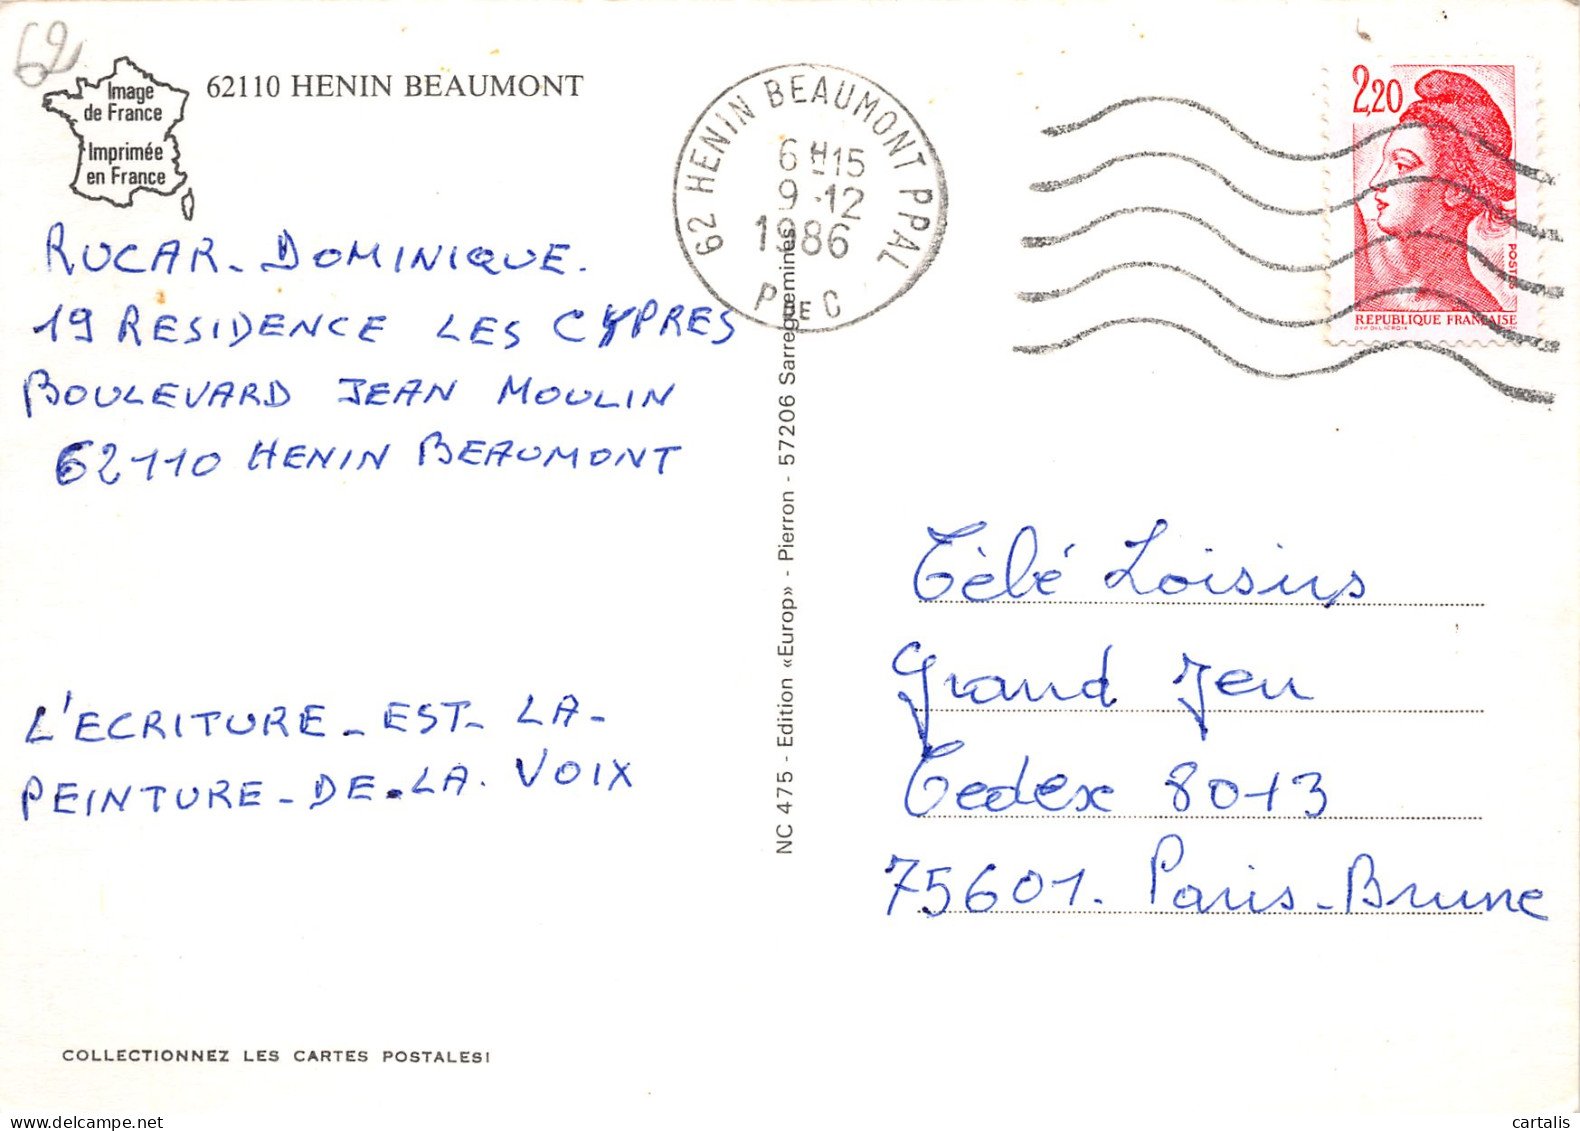 62
Image
de France
Imprimée
en France
62110 HENIN BEAUMONT
62 HENIN BEAUMONT PPAL
6 H15
9 -12
1986
P DE C
2,20
POSTES
REPUBLIQUE FRANÇAISE
RUCAR - DOMINIQUE.
19 RESIDENCE LES CYPRES
BOULEVARD JEAN MOULIN
62110 HENIN BEAUMONT
L'ECRITURE - EST - LA -
PEINTURE - DE - LA. VOIX
NC 475 - Edition «Europ» - Pierron - 57206 Sarreguemines
Télé Loisirs
Grand Jeu
Cedex 8013
75601. Paris-Brune
COLLECTIONNEZ LES CARTES POSTALES!
cartalis